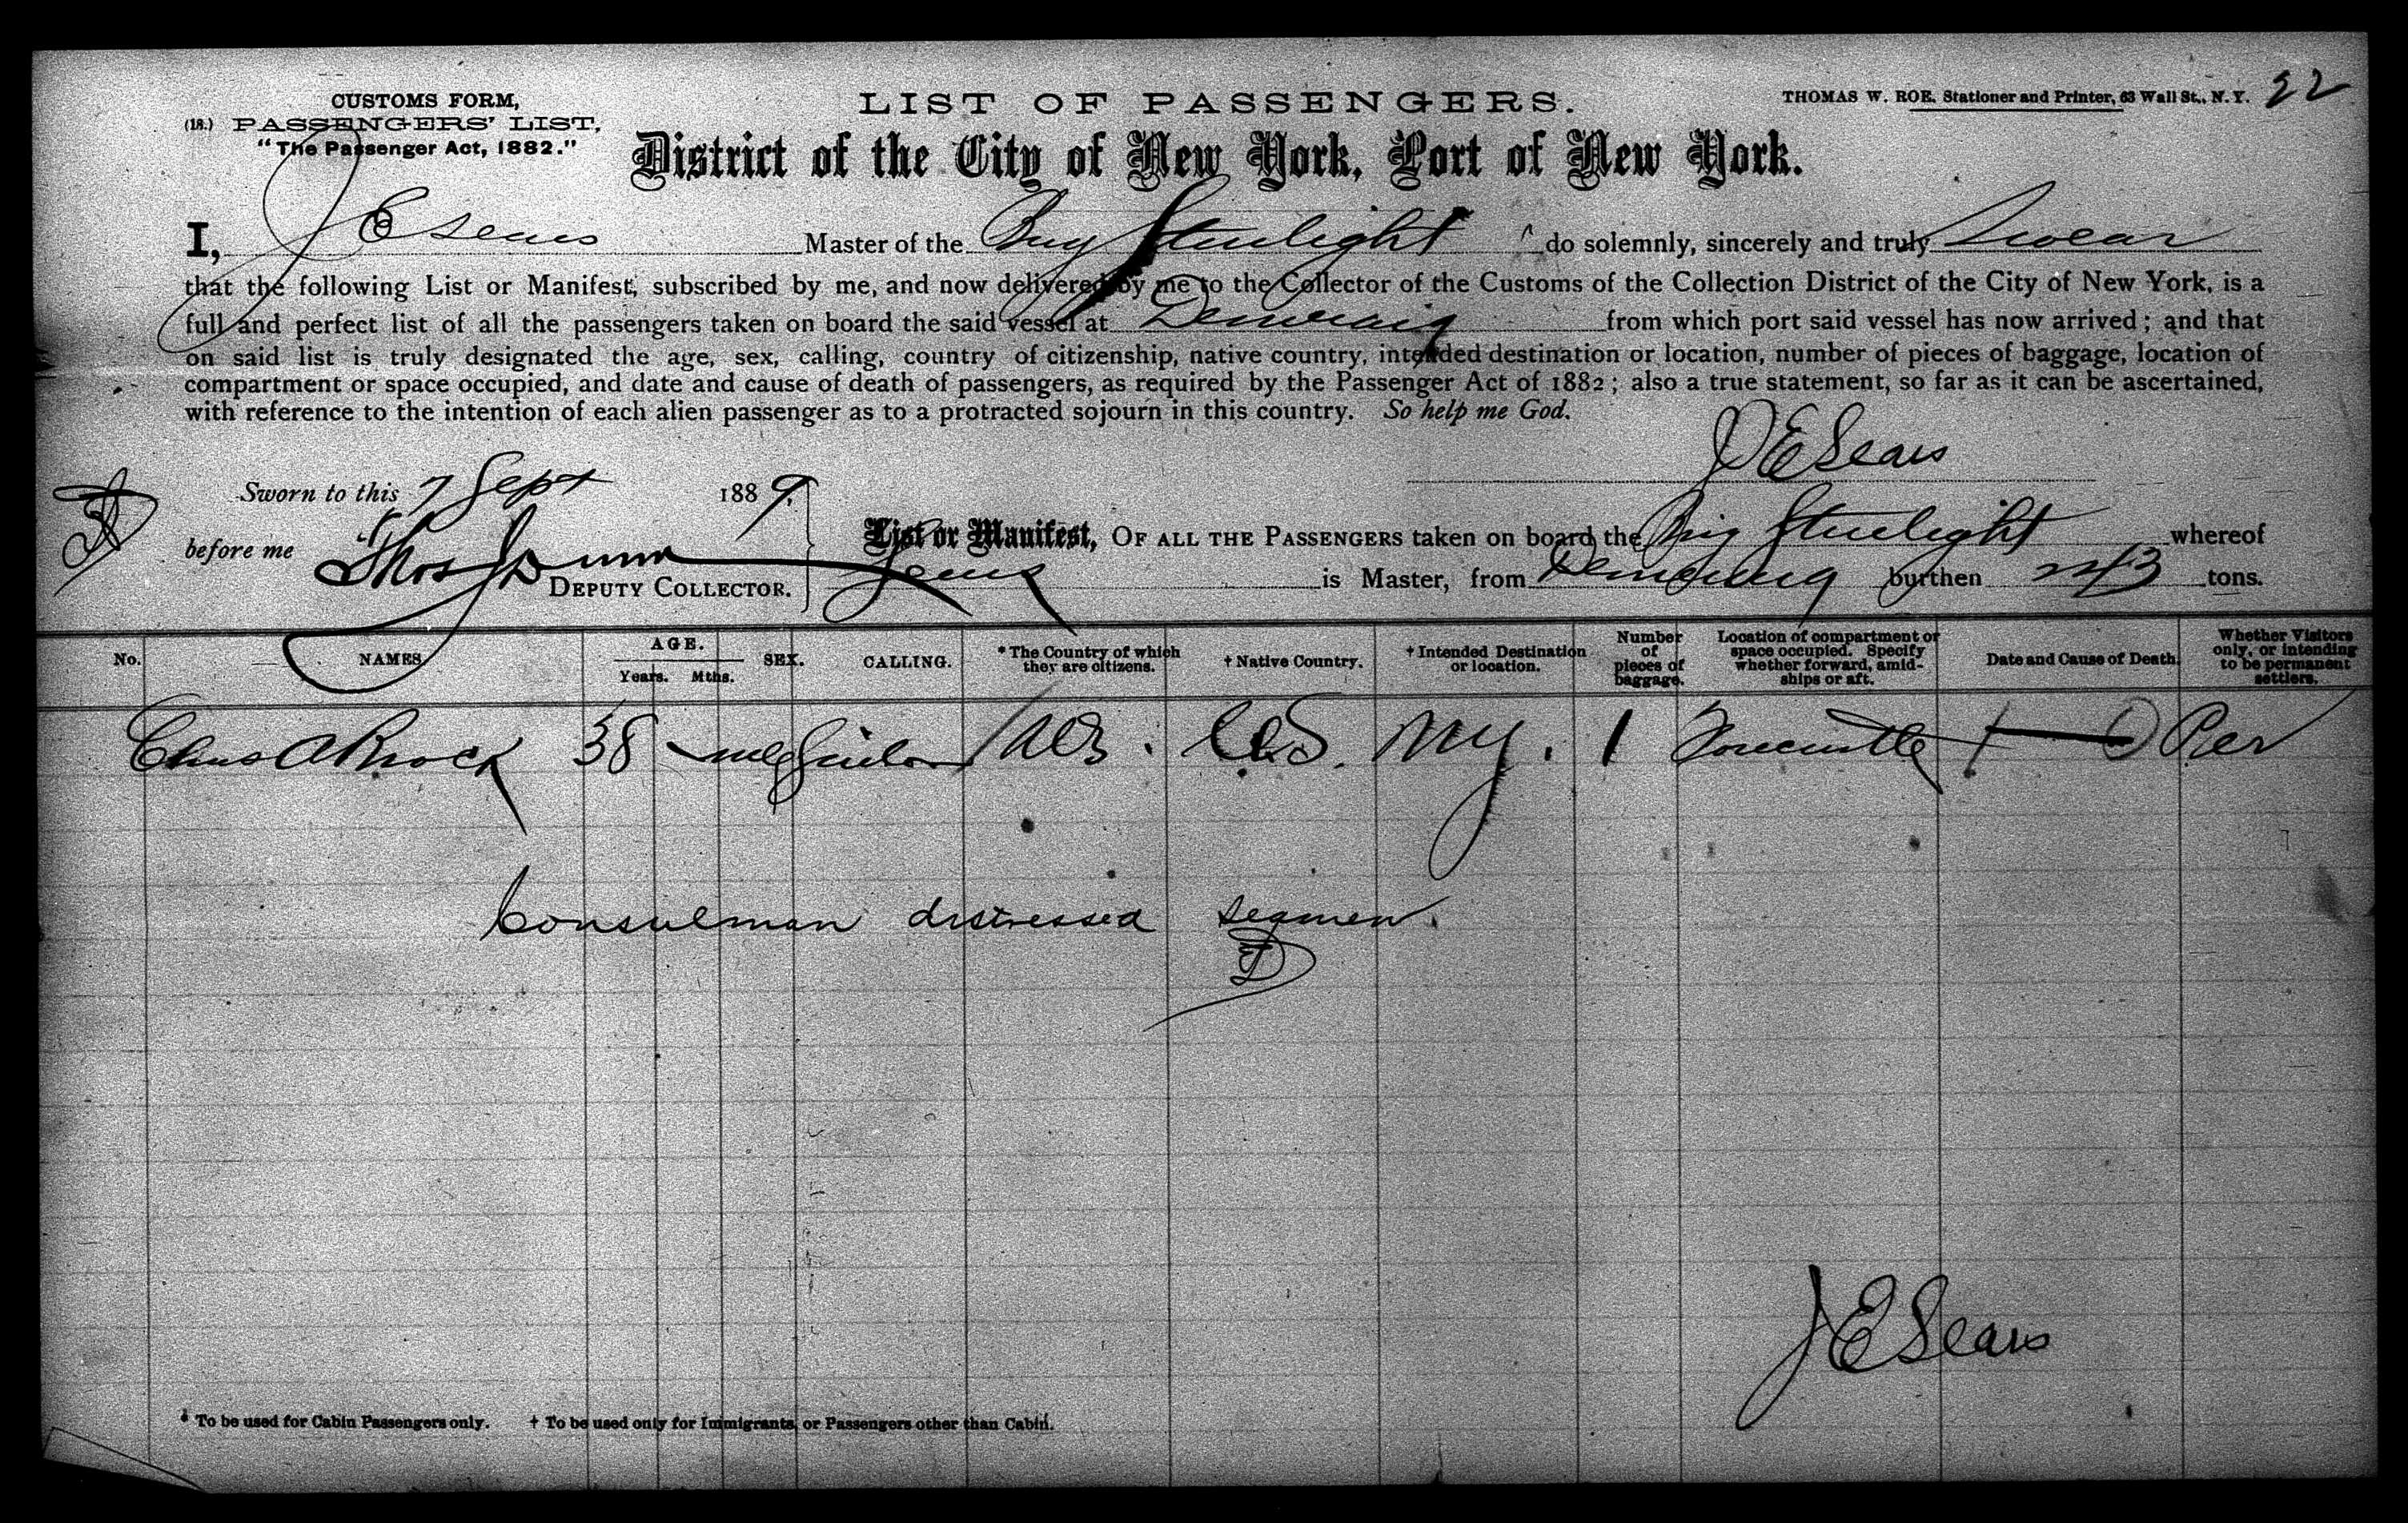 CUSTOMS FORM,
(18.) PASSENGERS' LIST,
"The Passenger Act, 1882."
LIST OF PASSENGERS.
THOMAS W. ROE, Stationer and Printer, 63 Wall St., N. Y. 22
District of the City of New York, Port of New York.
I, J E Sears Master of the Brig Starlight do solemnly, sincerely and truly swear
that the following List or Manifest, subscribed by me, and now delivered by me to the Collector of the Customs of the Collection District of the City of New York, is a
full and perfect list of all the passengers taken on board the said vessel at from which port said vessel has now arrived; and that
on said list is truly designated the age, sex, calling, country of citizenship, native country, intended destination or location, number of pieces of baggage, location of
compartment or space occupied, and date and cause of death of passengers, as required by the Passenger Act of 1882; also a true statement, so far as it can be ascertained,
with reference to the intention of each alien passenger as to a protracted sojourn in this country. So help me God.
J E Sears
Sworn to this 7 Sept 1889.
before me Thos J Dunn
DEPUTY COLLECTOR.
List or Manifest, OF ALL THE PASSENGERS taken on board the Brig Starlight whereof
Sears is Master, from burthen tons.
No. NAMES. AGE. Years. Mths. SEX. CALLING. * The Country of which they are citizens. † Native Country. † Intended Destination or location. Number of pieces of baggage. Location of compartment or space occupied. Specify whether forward, amid-ships or aft. Date and Cause of Death. Whether Visitors only, or intending to be permanent settlers.
Chas A 38 Sailor U.S. NY. 1 Forecastle Per
Consulman distressed seamen.
J E Sears
* To be used for Cabin Passengers only. † To be used only for Immigrants, or Passengers other than Cabin.